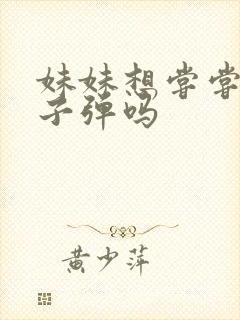 妹妹想尝尝
子弹吗
黄少萍